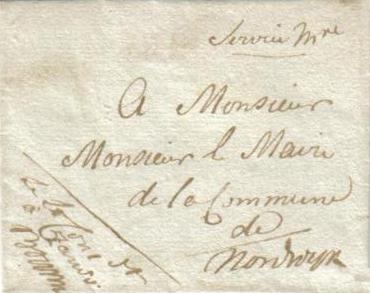 Service Mre
A Monsieur
Monsieur le Maire
de la Commune
de
Nordwyk